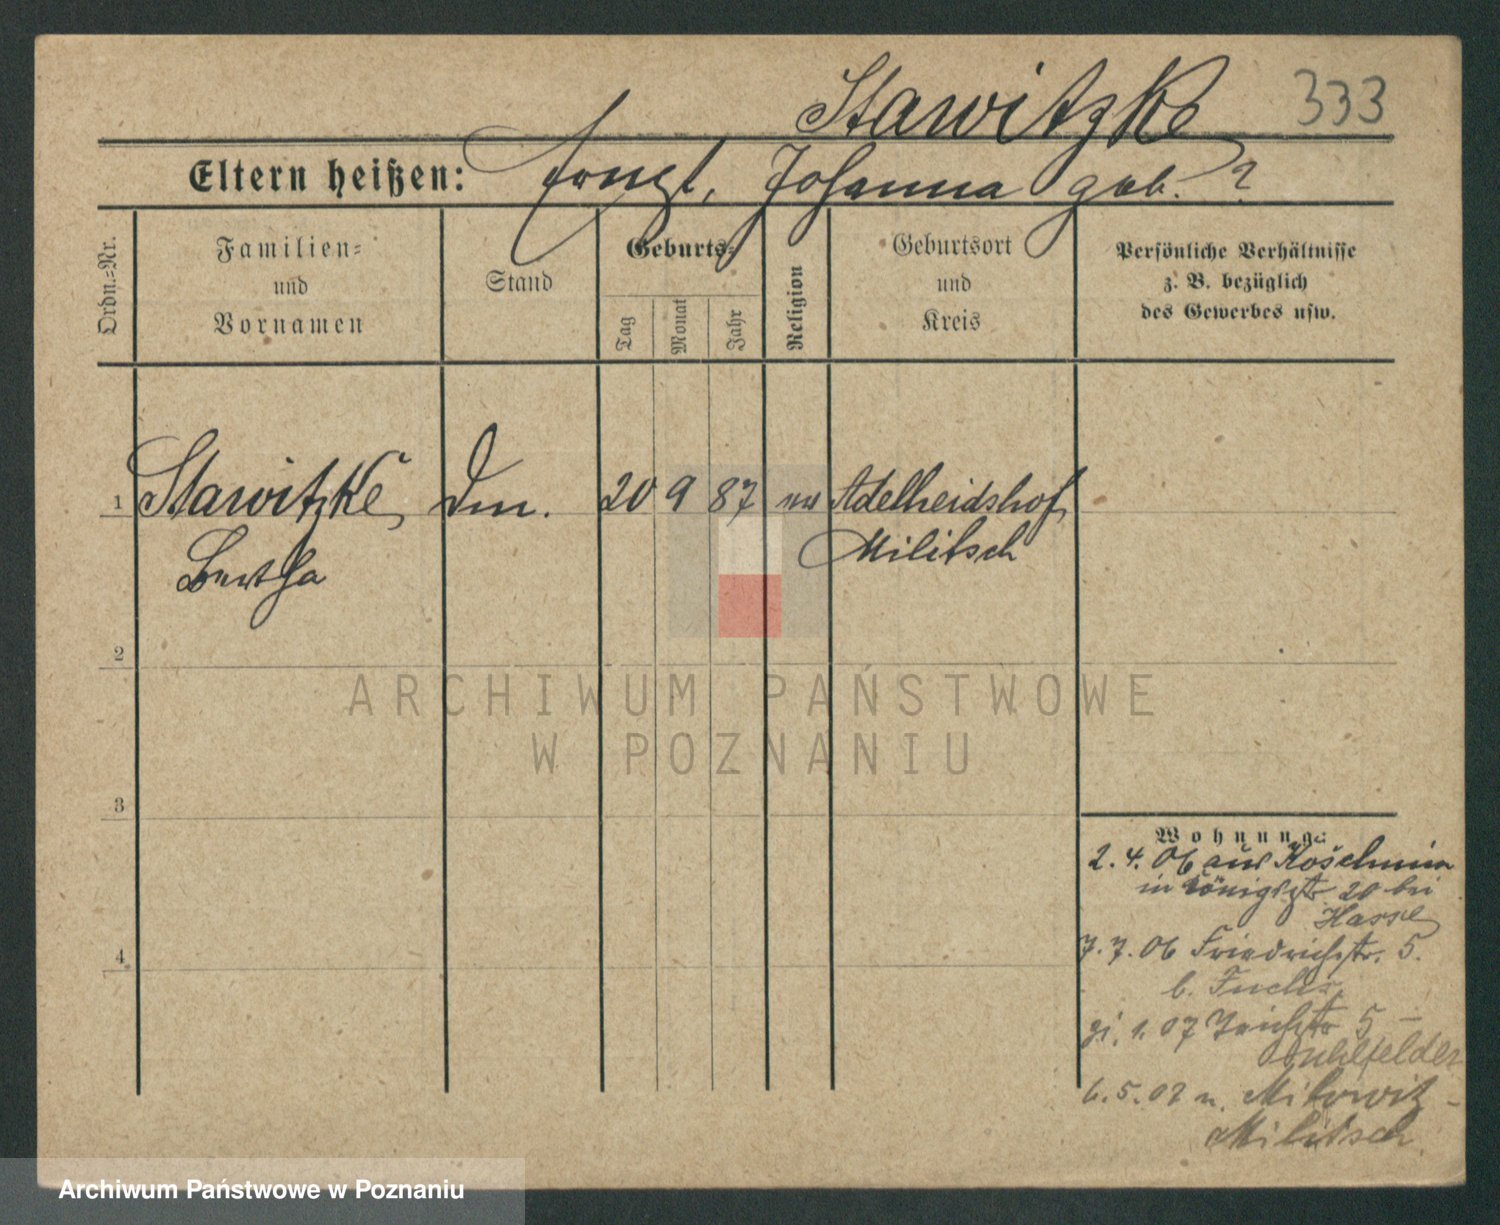 Stawitzke 333
Eltern heißen: August, Johanna geb. ?
Ordn.=Nr.
Familien=
und
Vornamen
Stand
Geburts=
Tag
Monat
Jahr
Religion
Geburtsort
und
Kreis
Persönliche Verhältnisse
z. B. bezüglich
des Gewerbes usw.
1 Stawitzke, Dm. 20 9 87 ev Adelheidshof,
Bertha Militsch
2
ARCHIWUM PAŃSTWOWE
W POZNANIU
3
Wohnung:
2. 4. 06 aus Koschmin
in Königstr 20 bei
Hasse
7. 7. 06 Friedrichstr. 5.
b. Fuchs
1. 07 5 –
4
6. 5. 07 n.
Militsch
Archiwum Państwowe w Poznaniu